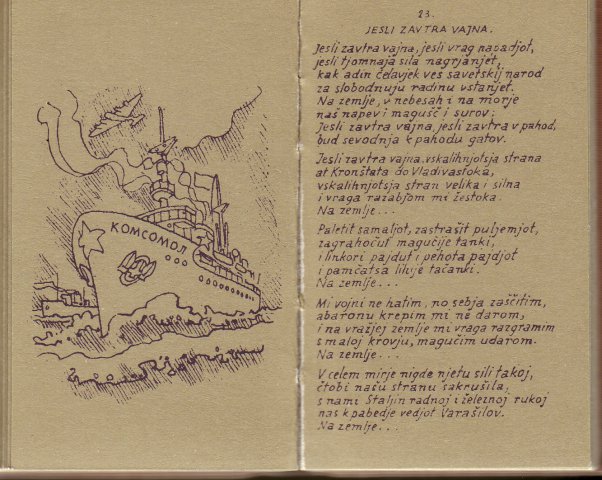 КОМСОМОЛ
23.
JESLI ZAVTRA VAJNA.
Jesli zavtra vajna, jesli vrag napadjot,
jesli tjomnaja sila nagrjanjet,
kak adin čelavjek ves savetskij narod
za slobodnuju radinu vstanjet.
Na zemlje, v nebesah i na morje
naš napev i magušč i surov:
Jesli zavtra vajna, jesli zavtra v pahod,
bud sevodnja k pahodu gatov.
Jesli zavtra vajna, vskalihnjotsja strana
at Kronštata do Vladivastoka,
vskalihnjotsja stran velika i silna
i vraga razabjom mi žestoka.
Na zemlje...
Paletit samaljot, zastračit puljemjot,
zagrahočut magučije tanki,
i linkori pajdut i pehota pajdjot
i pamčatsa lihije tačanki.
Na zemlje...
Mi vojni ne hatim, no sebja zaščitim,
abaronu krepim mi ne darom,
i na vražjej zemlje mi vraga razgramim
s maloj krovju, magučim udarom.
Na zemlje...
V celem mirje nigde njetu sili takoj,
čtobi našu stranu sakrušila,
s nami Staljin radnoj i železnoj rukoj
nas k pabedje vedjot Varašilov.
Na zemlje...